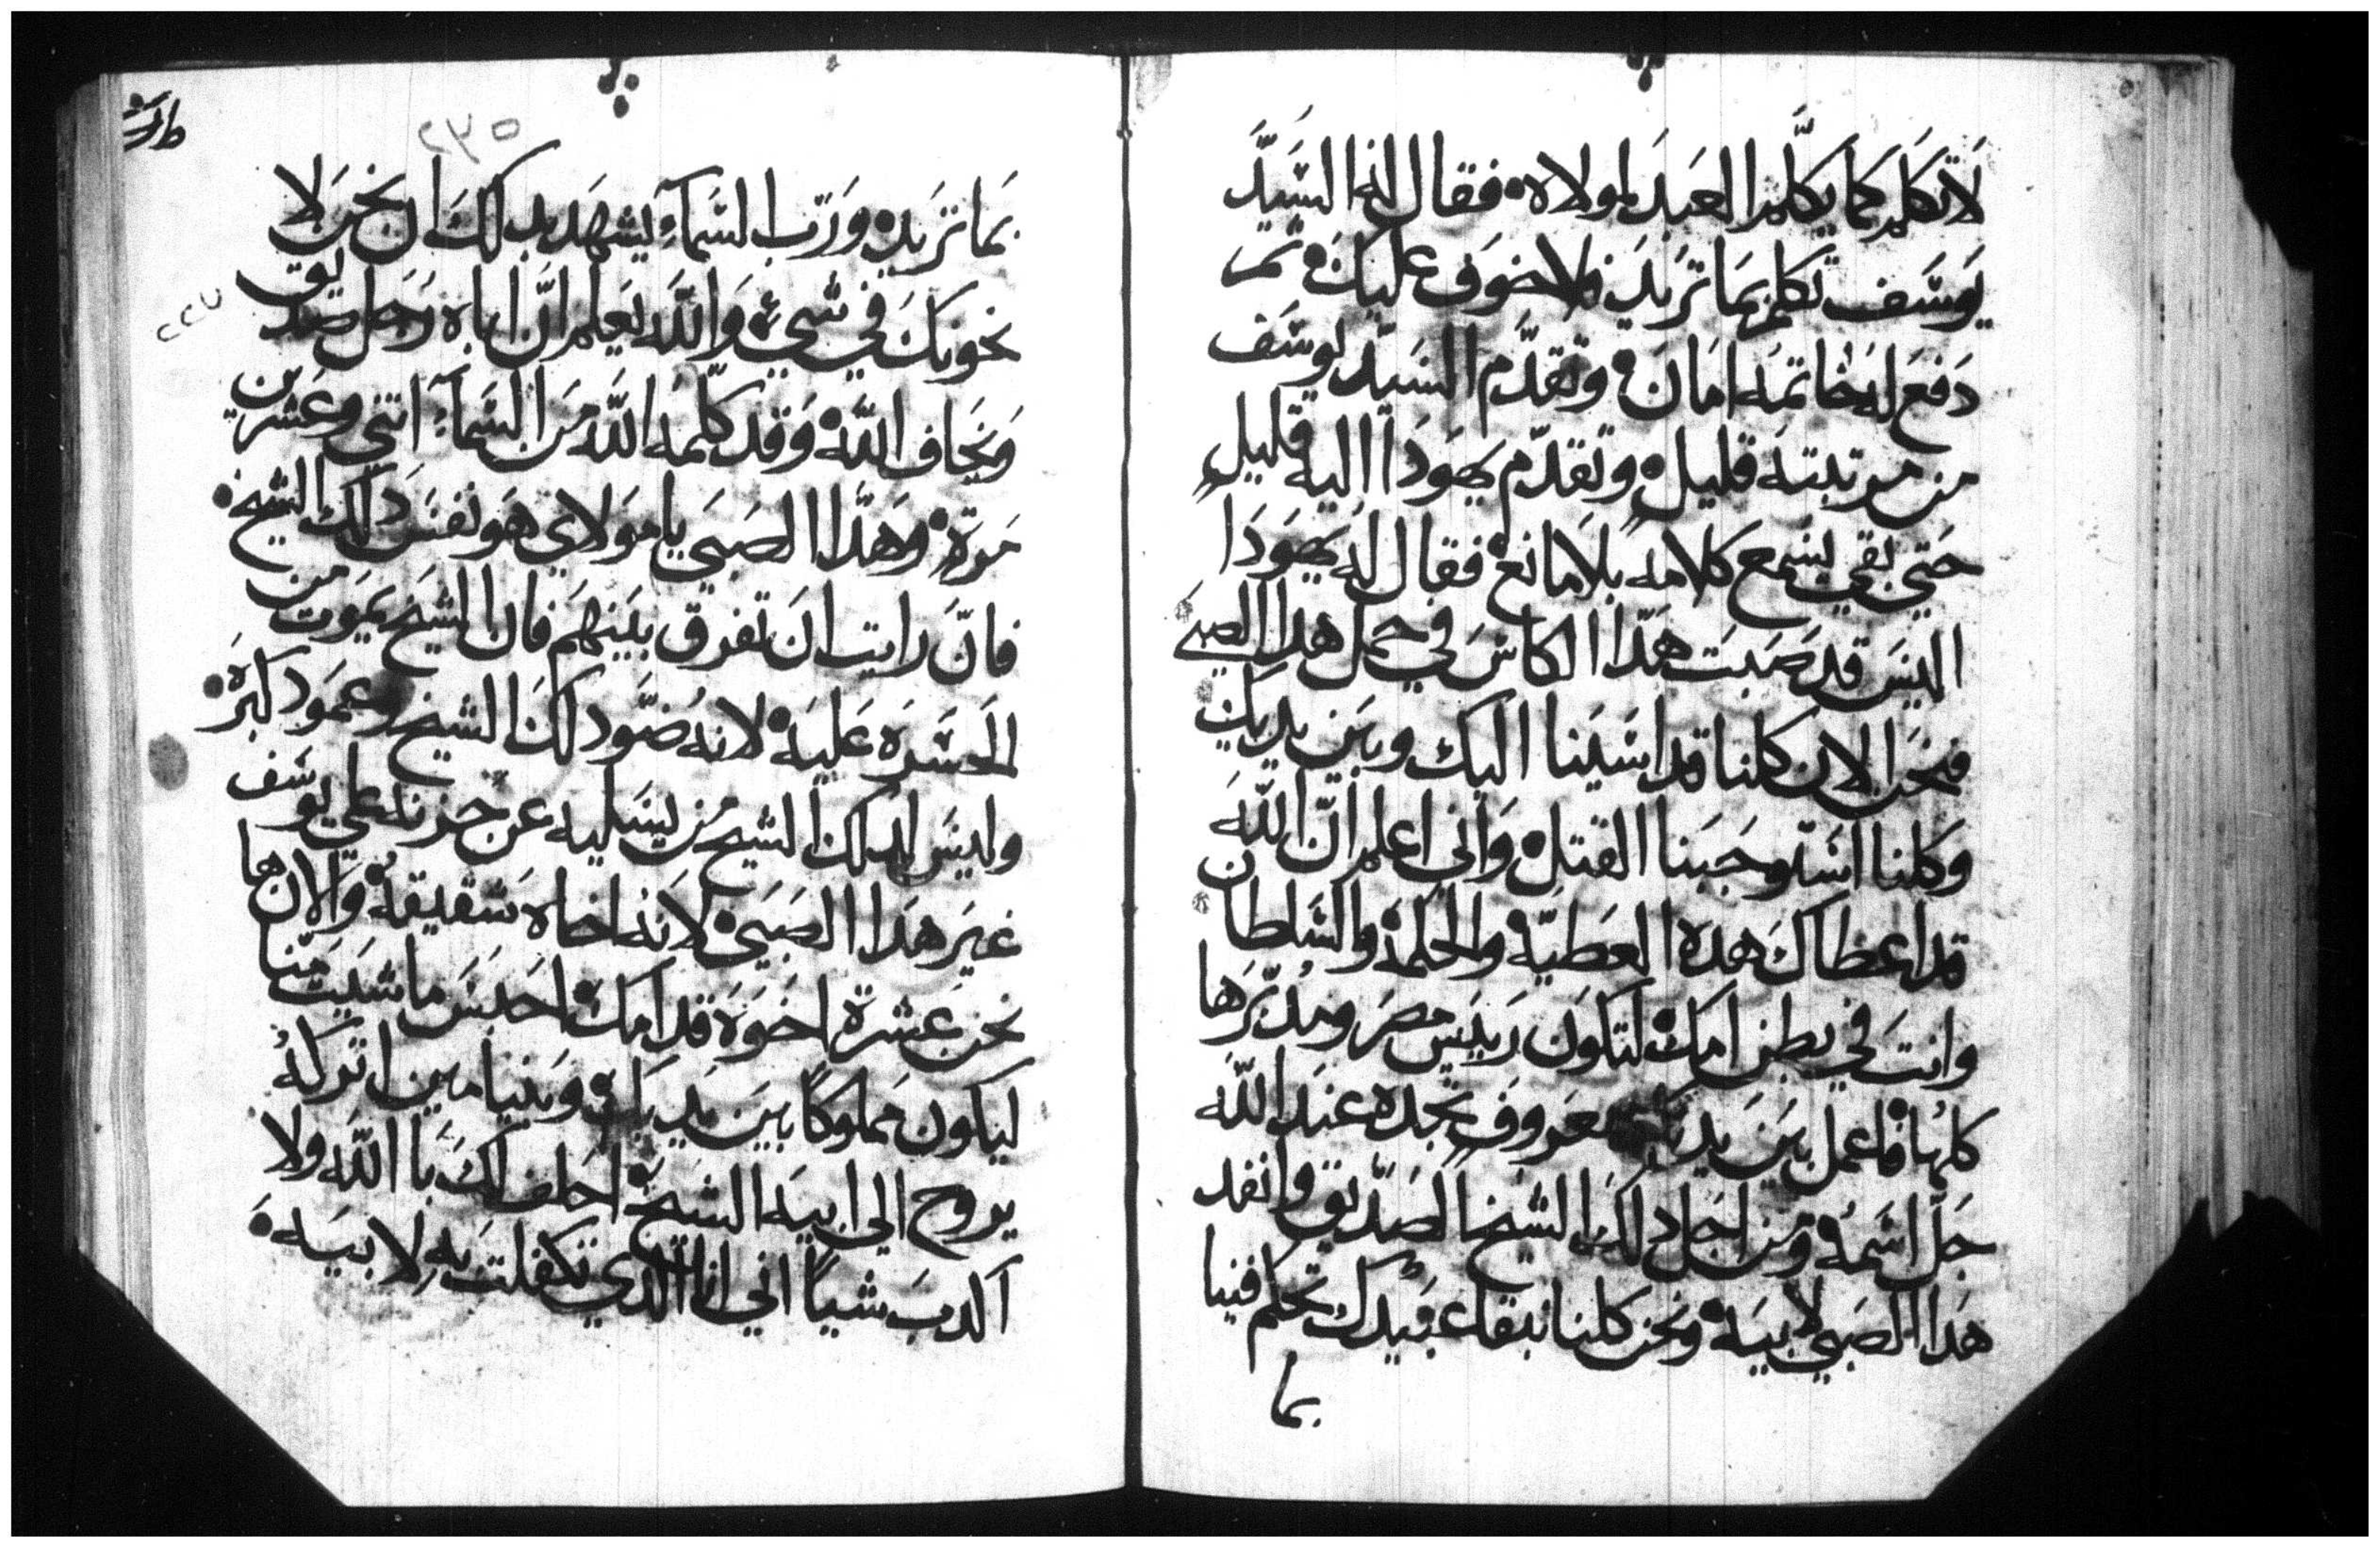 لاتكلم كما يكلم العبد لمولاه فقال له السيد
يوسف تكلم بما تريد فلا خوف عليك ثم
دفع له خاتمه امان وتقدم السيد يوسف
من مرتبته قليل وتقدم يهودا اليه قليل
حتي بقي يسمع كلامه بلا مانع فقال له يهودا
اليس قد صبت هدا الكاس في حمل هدا الصبي
فنحن الان كلنا قد اسينا اليك وبين يديك
وكلنا استوجبنا القتل واني اعلم ان الله
قد اعطاك هده العطية والحكمة والسلطان
وانت في بطن امك لتكون رييس مصر ومدبرها
كلها فاعمل بين يديك معروف تجده عند الله
جل اسمه ومن اجل دلك الشيخ الصديق وانفد
هدا الصبي لابيه ونحن كلنا نبقا عبيدك تحكم فينا
بما
٢٣٥
بما تريد ورب السماء يشهد بدلك ان نحن لا
نخونك في شيء والله يعلم ان اباه رجل صديق
ويخاف الله وقد كلمه الله من السماء اتني وعشرين
مرة وهدا الصبي يا مولاي هو نفس دلك الشيخ
فان رايت ان تفرق بينهم فان الشيخ يموت من
الحسره عليه لانه ضو دلك الشيخ وعمود كبره
وليس لدلك الشيخ من يسليه عن حزنه علي يوسف
غير هدا الصبي لانه اخاه شقيقه والان ها
نحن عشرة اخوه قدامك احبس ما شيت منا
ليكون مملوكا بين يديك وبنيامين اتركه
يروح الي ابيه الشيخ احلف لك با الله ولا
اكدب شيا اني انا الدي تكفلت به لابيه
٢٢٧